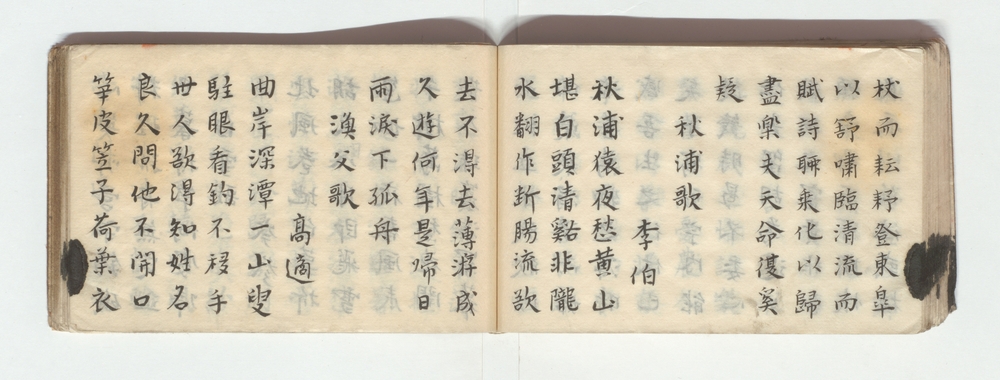 杖而耘耔登東皐
以舒嘯臨清流而
賦詩聊乘化以歸
盡樂夫天命復奚
疑
秋浦歌
李伯
秋浦猿夜愁黄山
堪白頭清谿非隴
水翻作断腸流欲
去不得去薄游成
久遊何年是帰日
雨淚下孤舟
漁父歌
高適
曲岸深潭一山叟
駐眼看釣不移手
世人欲得知姓名
良久問他不開口
笋皮笠子荷葉衣